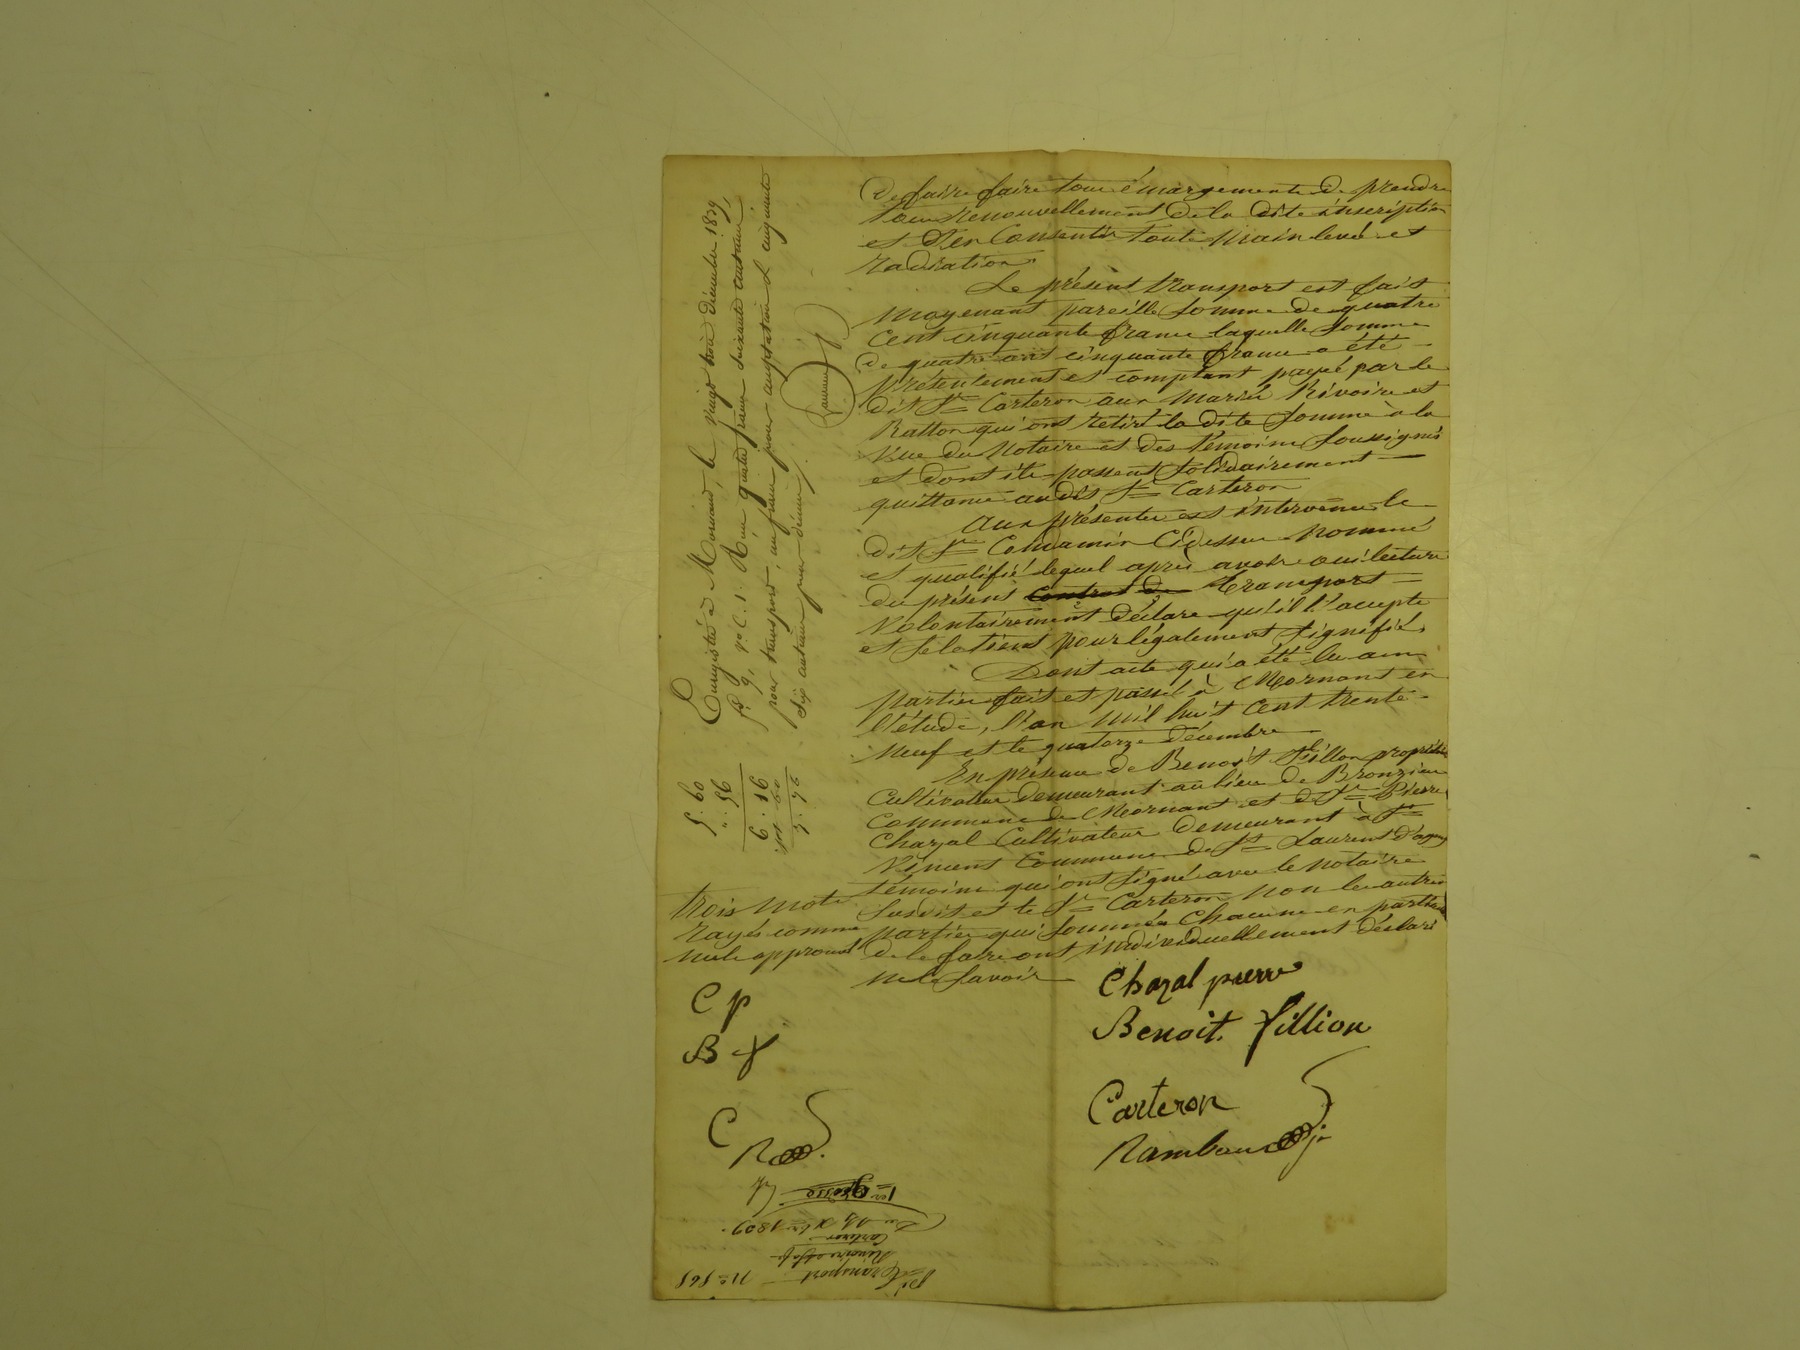 De faire faire tous émargements De prendre
tous Renouvellement De la dite inscription
et D'en Consentir toute main levé et
radiation.
Le présent transport est fait
moyenant pareille somme de quatre
Cent cinquante francs laquelle somme
De quatre cent cinquante francs a été
Présentement et comptant payée par le
dit Sr Carteron aux mariés Rivoire et
Ratton qui ont retiré la dite somme à la
Vue du Notaire et des témoins soussignés
et dont ils passent solidairement
quittance audit Sr Carteron
Aux présentes est intervenu le
dit Sr Condamin Cidessus nommé
et qualifié lequel après avoir oui lecture
du présent Contrat de transport
Volontairement déclare qu'il l'accepte
et se le tient pour légalement signifié.
Dont acte qui a été lu aux
parties fait et passé à Mornant en
l'étude, l'an mil huit Cent trente
neuf et le quatorze décembre
En présence de Benoît Fillion propriétaire
Cultivateur demeurant au lieu de
Commune de Mornant et de Sr Pierre
Chazal Cultivateur demeurant à St
Vincent Commune de St Laurent D'agny
témoins qui ont signé avec le notaire
susdit et le Sr Carteron non les autres
parties qui sommées chacune en particulier
de le faire ont individuellement déclaré
ne le savoir
trois mots
rayés comme
nuls approuvés
Chazal pierre
Benoit. fillion
Carteron
Rambaud jn
C p
B f
C
R
Enregistré à Mornant, le vingt trois décembre 1839,
fo 9, vo C. 1. Reçu quatre francs soixante centimes
pour transport, un franc pour acceptation & cinquante
six centimes pour décime.
5. 60
". 56
6. 16
7. 76
1er grosse
Du 14 Xbre 1839.
Transport
Carteron